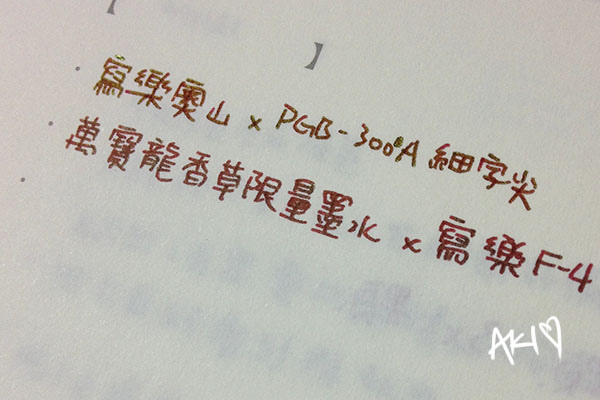 【
】
寫樂奧山 x PGB-300A 細字尖
萬寶龍香草限量墨水 x 寫樂 F-4
AKI♡